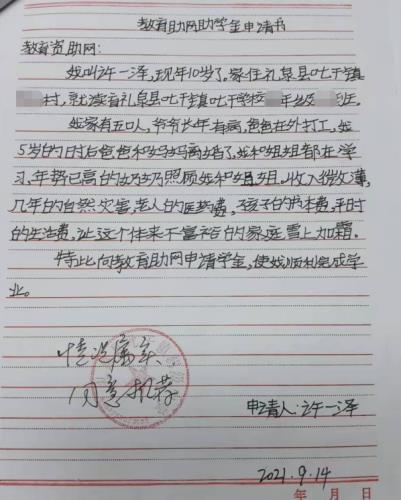 教育助网助学金申请书
教育资助网:
我叫许一泽,现年10岁了,家住礼泉县叱干镇
村,就读省礼泉县叱干镇叱干学校 年级 班。
我家有五口人,爷爷长年有病,爸爸在外打工,我
5岁的时后爸爸和妈妈离婚了,我和姐姐都在学
习,年势已高的奶奶照顾我和姐姐。收入微薄,
几年的自然灾害,老人的医药费,孩子的书本费,平时
的生活费,让这个本来不富裕的家庭雪上加霜。
特此向教育助网申请学金,使我顺利完成学
业。
情况属实、
同意推荐
申请人:许一泽
2021.9.14
年 月 日